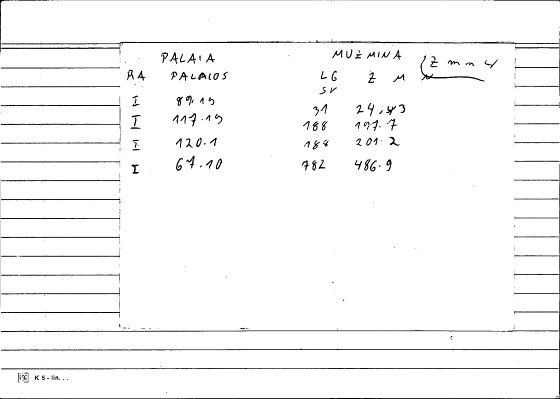 PALAIA MUZMINA Z m n
RA PALAIOS LG Z M N
SV
I 89.19 31 24,43
I 117.19 188 197.7
I 120.1 188 201.2
I 67.10 782 486.9
K5-lin...